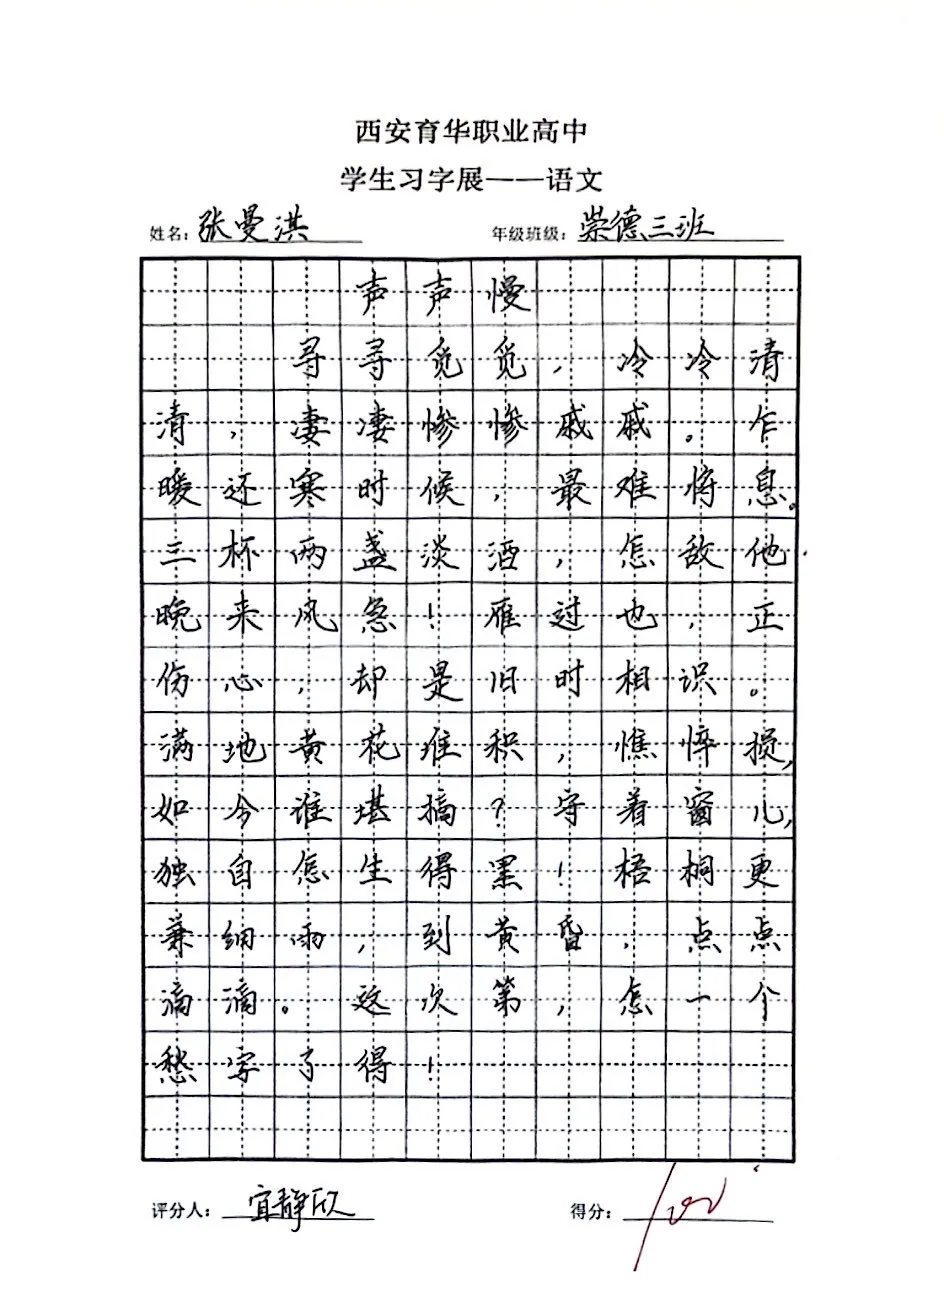 西安育华职业高中
学生习字展——语文
姓名：张曼淇 年级班级：崇德三班
声声慢
寻寻觅觅，冷冷清
清，凄凄惨惨戚戚。乍
暖还寒时候，最难将息。
三杯两盏淡酒，怎敌他
晚来风急！雁过也，正
伤心，却是旧时相识。
满地黄花堆积，憔悴损，
如今谁堪摘？守着窗儿，
独自怎生得黑！梧桐更
兼细雨，到黄昏，点点
滴滴。这次第，怎一个
愁字了得！
评分人：宜静欣 得分：100